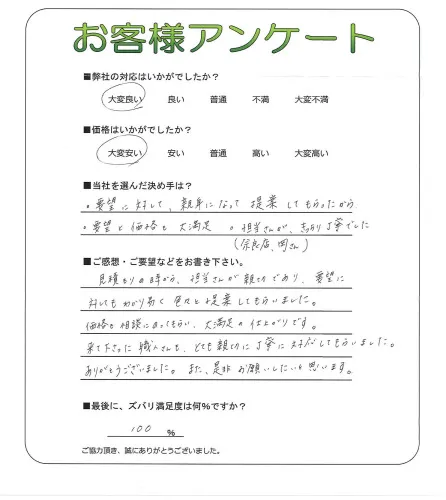 お客様アンケート
■弊社の対応はいかがでしたか？
大変良い 良い 普通 不満 大変不満
■価格はいかがでしたか？
大変安い 安い 普通 高い 大変高い
■当社を選んだ決め手は？
。要望に対して、親身になって提案してもらったから
。要望と価格も大満足 。担当さんが、丁寧でした
(奈良店、岡さん)
■ご感想・ご要望などをお書き下さい。
見積もりの時から、担当さんが親切であり、要望に
対してもわかり易く色々と提案してもらいました。
価格も相談にのってもらい、大満足の仕上がりです。
来て下さった職人さんも、とても親切に丁寧に対応してもらいました。
ありがとうございました。また、是非お願いしたいと思います。
■最後に、ズバリ満足度は何%ですか？
100 %
ご協力頂き、誠にありがとうございました。